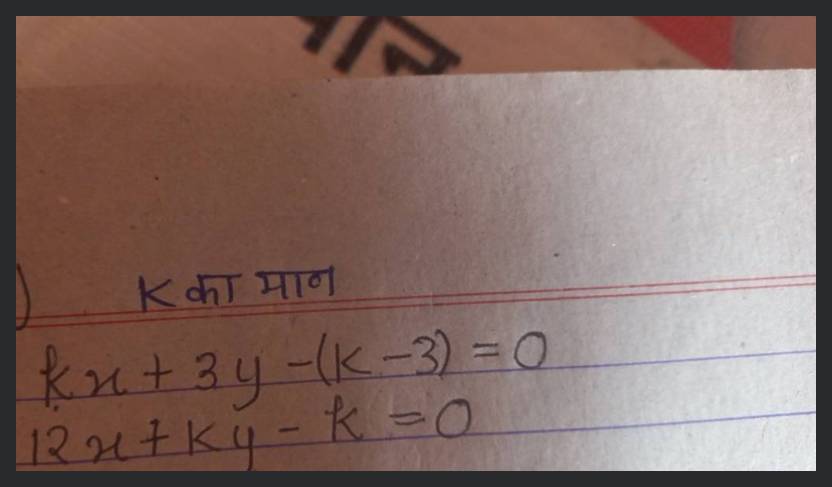 ) K का मान
kx + 3y - (k - 3) = 0
12x + ky - k = 0